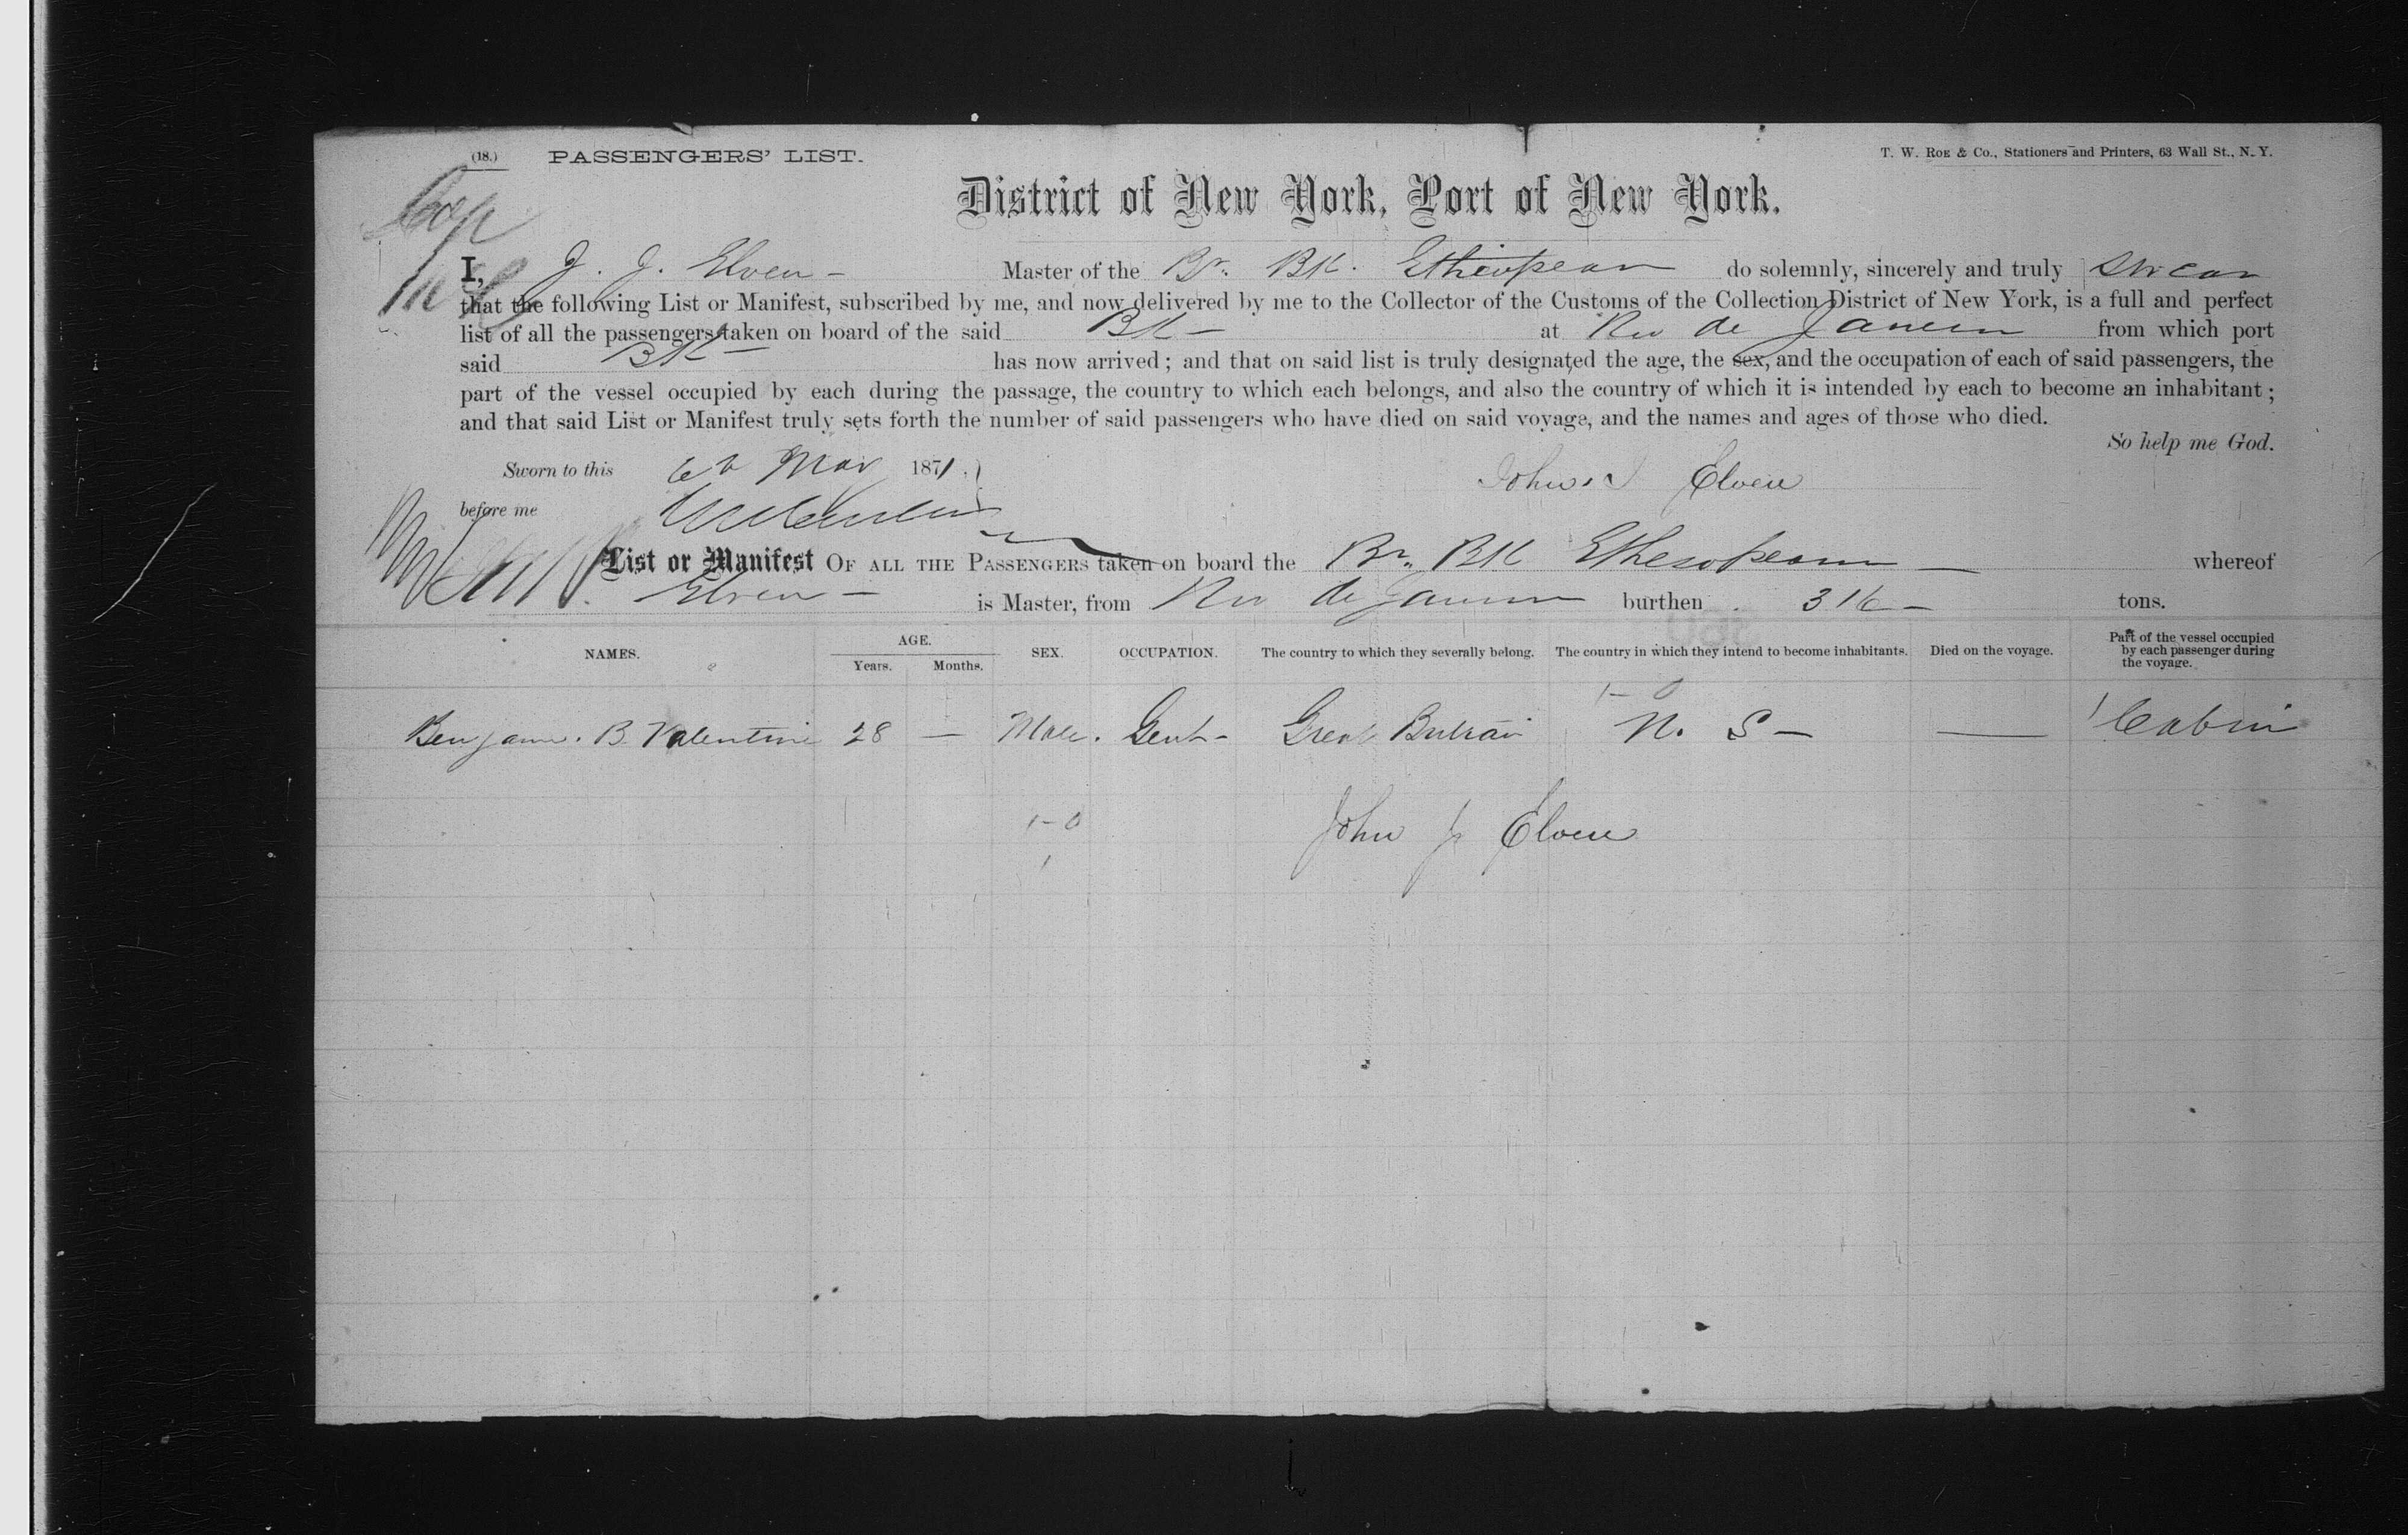 (18.) PASSENGERS' LIST. T. W. Roe & Co., Stationers and Printers, 63 Wall St., N. Y.
District of New York, Port of New York.
I, J. J. Elven - Master of the Br. BK. Ethiopean do solemnly, sincerely and truly swear
that the following List or Manifest, subscribed by me, and now delivered by me to the Collector of the Customs of the Collection District of New York, is a full and perfect
list of all the passengers taken on board of the said BK - at Rio de Janeiro from which port
said BK - has now arrived; and that on said list is truly designated the age, the sex, and the occupation of each of said passengers, the
part of the vessel occupied by each during the passage, the country to which each belongs, and also the country of which it is intended by each to become an inhabitant;
and that said List or Manifest truly sets forth the number of said passengers who have died on said voyage, and the names and ages of those who died.
So help me God.
Sworn to this 6th Mar 1871. John J Elven
before me
List or Manifest OF ALL THE PASSENGERS taken on board the Br. BK Ethesopean - whereof
Elven - is Master, from Rio de Janeiro burthen 316 - tons.
NAMES. AGE. Years. Months. SEX. OCCUPATION. The country to which they severally belong. The country in which they intend to become inhabitants. Died on the voyage. Part of the vessel occupied by each passenger during the voyage.
1-0
Benjamin. B. Valentine 28 — Male. Gent- Great Britain N. S - — 1 Cabin
1-0 John J. Elven
1